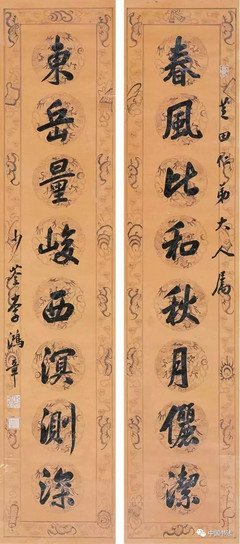 芝田仁弟大人属
春風比和秋月儷潔
東岳量峻西溟測深
少荃李鴻章
中国书法